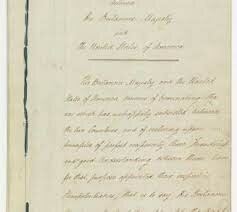 between
His Britannic Majesty
and
The United States of America.
His Britannic Majesty and the United
States of America desirous of terminating the
war which has unhappily subsisted between
the two Countries, and of restoring upon
principles of perfect reciprocity, Peace, Friendship
and good Understanding between them, have
for that purpose appointed their respective
Plenipotentiaries, that is to say, His Britannic